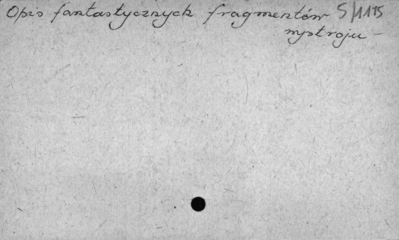 Opis fantastycznych fragmentów 5/1115
wystroju -